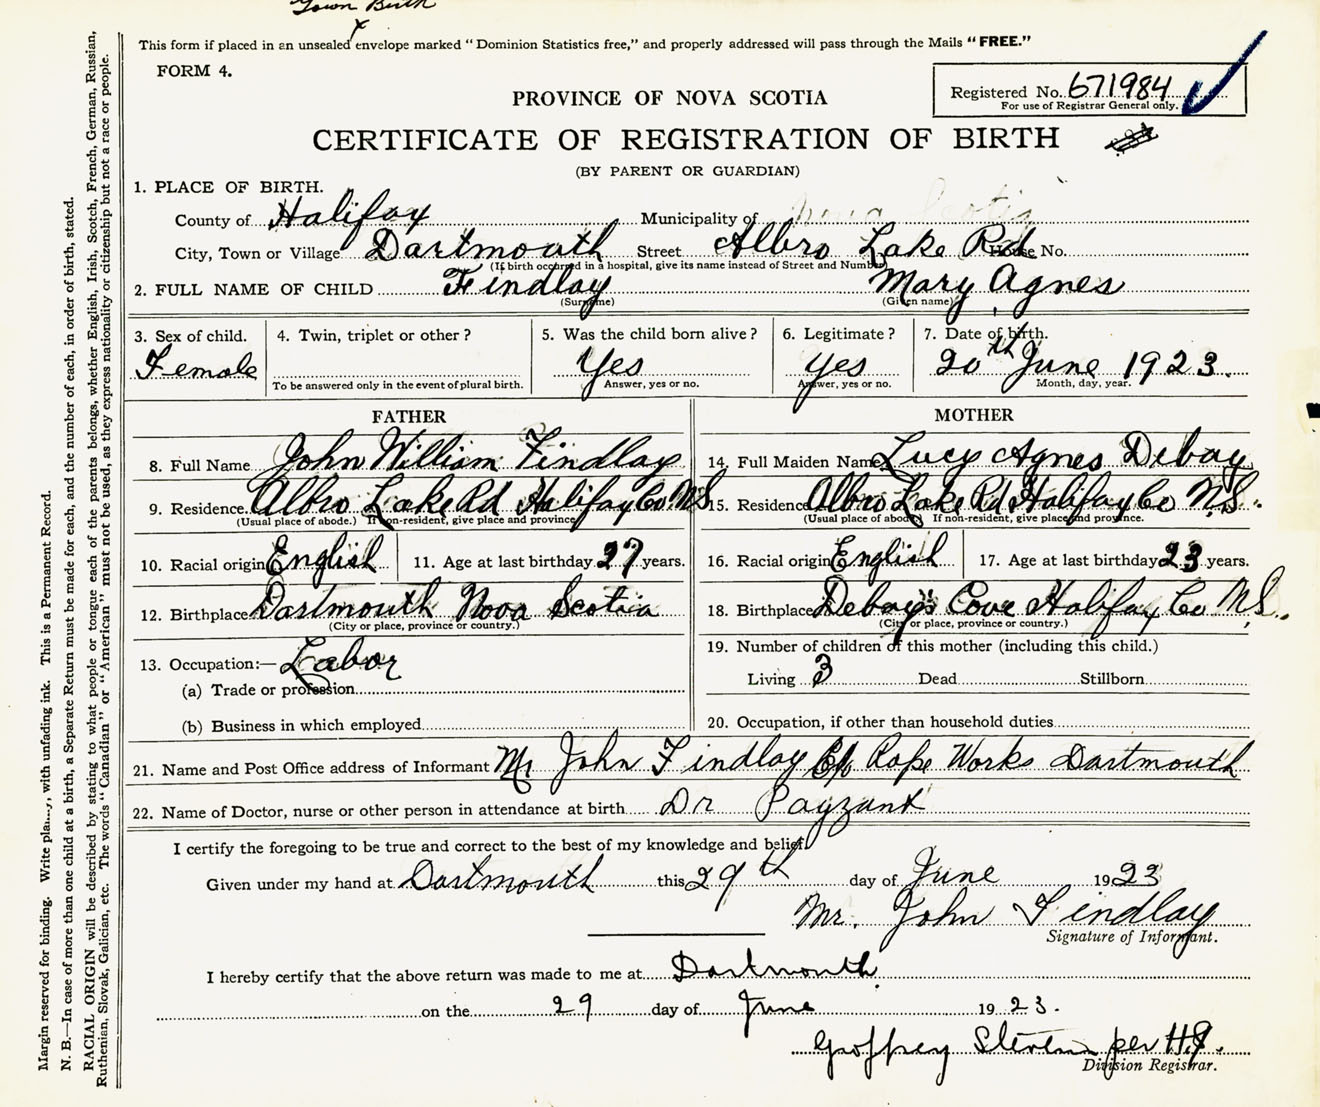 Town Birth
x
This form if placed in an unsealed envelope marked “Dominion Statistics free,” and properly addressed will pass through the Mails “FREE.”
FORM 4.
Registered No. 671984
For use of Registrar General only.
PROVINCE OF NOVA SCOTIA
CERTIFICATE OF REGISTRATION OF BIRTH
(BY PARENT OR GUARDIAN)
1. PLACE OF BIRTH.
County of Halifax Municipality of Nova Scotia
City, Town or Village Dartmouth Street Albro Lake Rd House No.
(If birth occurred in a hospital, give its name instead of Street and Number)
2. FULL NAME OF CHILD Findlay Mary Agnes
(Surname) (Given name)
3. Sex of child. 4. Twin, triplet or other? 5. Was the child born alive? 6. Legitimate? 7. Date of birth.
Female Yes Yes 20th June 1923.
To be answered only in the event of plural birth. Answer, yes or no. Answer, yes or no. Month, day, year.
FATHER MOTHER
8. Full Name John William Findlay 14. Full Maiden Name Lucy Agnes Debay
9. Residence. Albro Lake Rd Halifax Co. N.S 15. Residence Albro Lake Rd Halifax Co N.S.
(Usual place of abode.) If non-resident, give place and province (Usual place of abode) If non-resident, give place and province.
10. Racial origin English 11. Age at last birthday 27 years. 16. Racial origin English 17. Age at last birthday 23 years.
12. Birthplace Dartmouth Nova Scotia 18. Birthplace Debay's Cove Halifax Co N.S.
(City or place, province or country.) (City or place, province or country.)
13. Occupation:— Labor 19. Number of children of this mother (including this child.)
(a) Trade or profession Living 3 Dead Stillborn
(b) Business in which employed 20. Occupation, if other than household duties
21. Name and Post Office address of Informant Mr John Findlay C/o Rope Works Dartmouth
22. Name of Doctor, nurse or other person in attendance at birth Dr Payzant
I certify the foregoing to be true and correct to the best of my knowledge and belief.
Given under my hand at Dartmouth this 29th day of June 1923
Mr. John Findlay
Signature of Informant.
I hereby certify that the above return was made to me at Dartmouth.
on the 29 day of June 1923.
Geoffrey Stevens per H.S.
Division Registrar.
Margin reserved for binding. Write with unfading ink. This is a Permanent Record.
N. B.—In case of more than one child at a birth, a Separate Return must be made for each, and the number of each, in order of birth, stated.
RACIAL ORIGIN will be described by stating to what people or tongue each of the parents belongs, whether English, Irish, Scotch, French, German, Russian,
Ruthenian, Slovak, Galician, etc. The words “Canadian” or “American” must not be used, as they express nationality or citizenship but not a race or people.